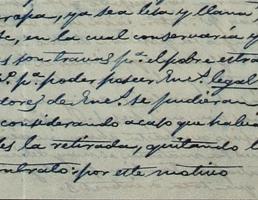 rapa, ya sea lisa y llana,
te, en la cual conservaría y
es son travas pª. el pobre estra
pª poder poseer Eneº. legal
dores de Eneº. se pudieran
considerando acaso que habia
es la retirada, quitando l
ontrato: por este motivo